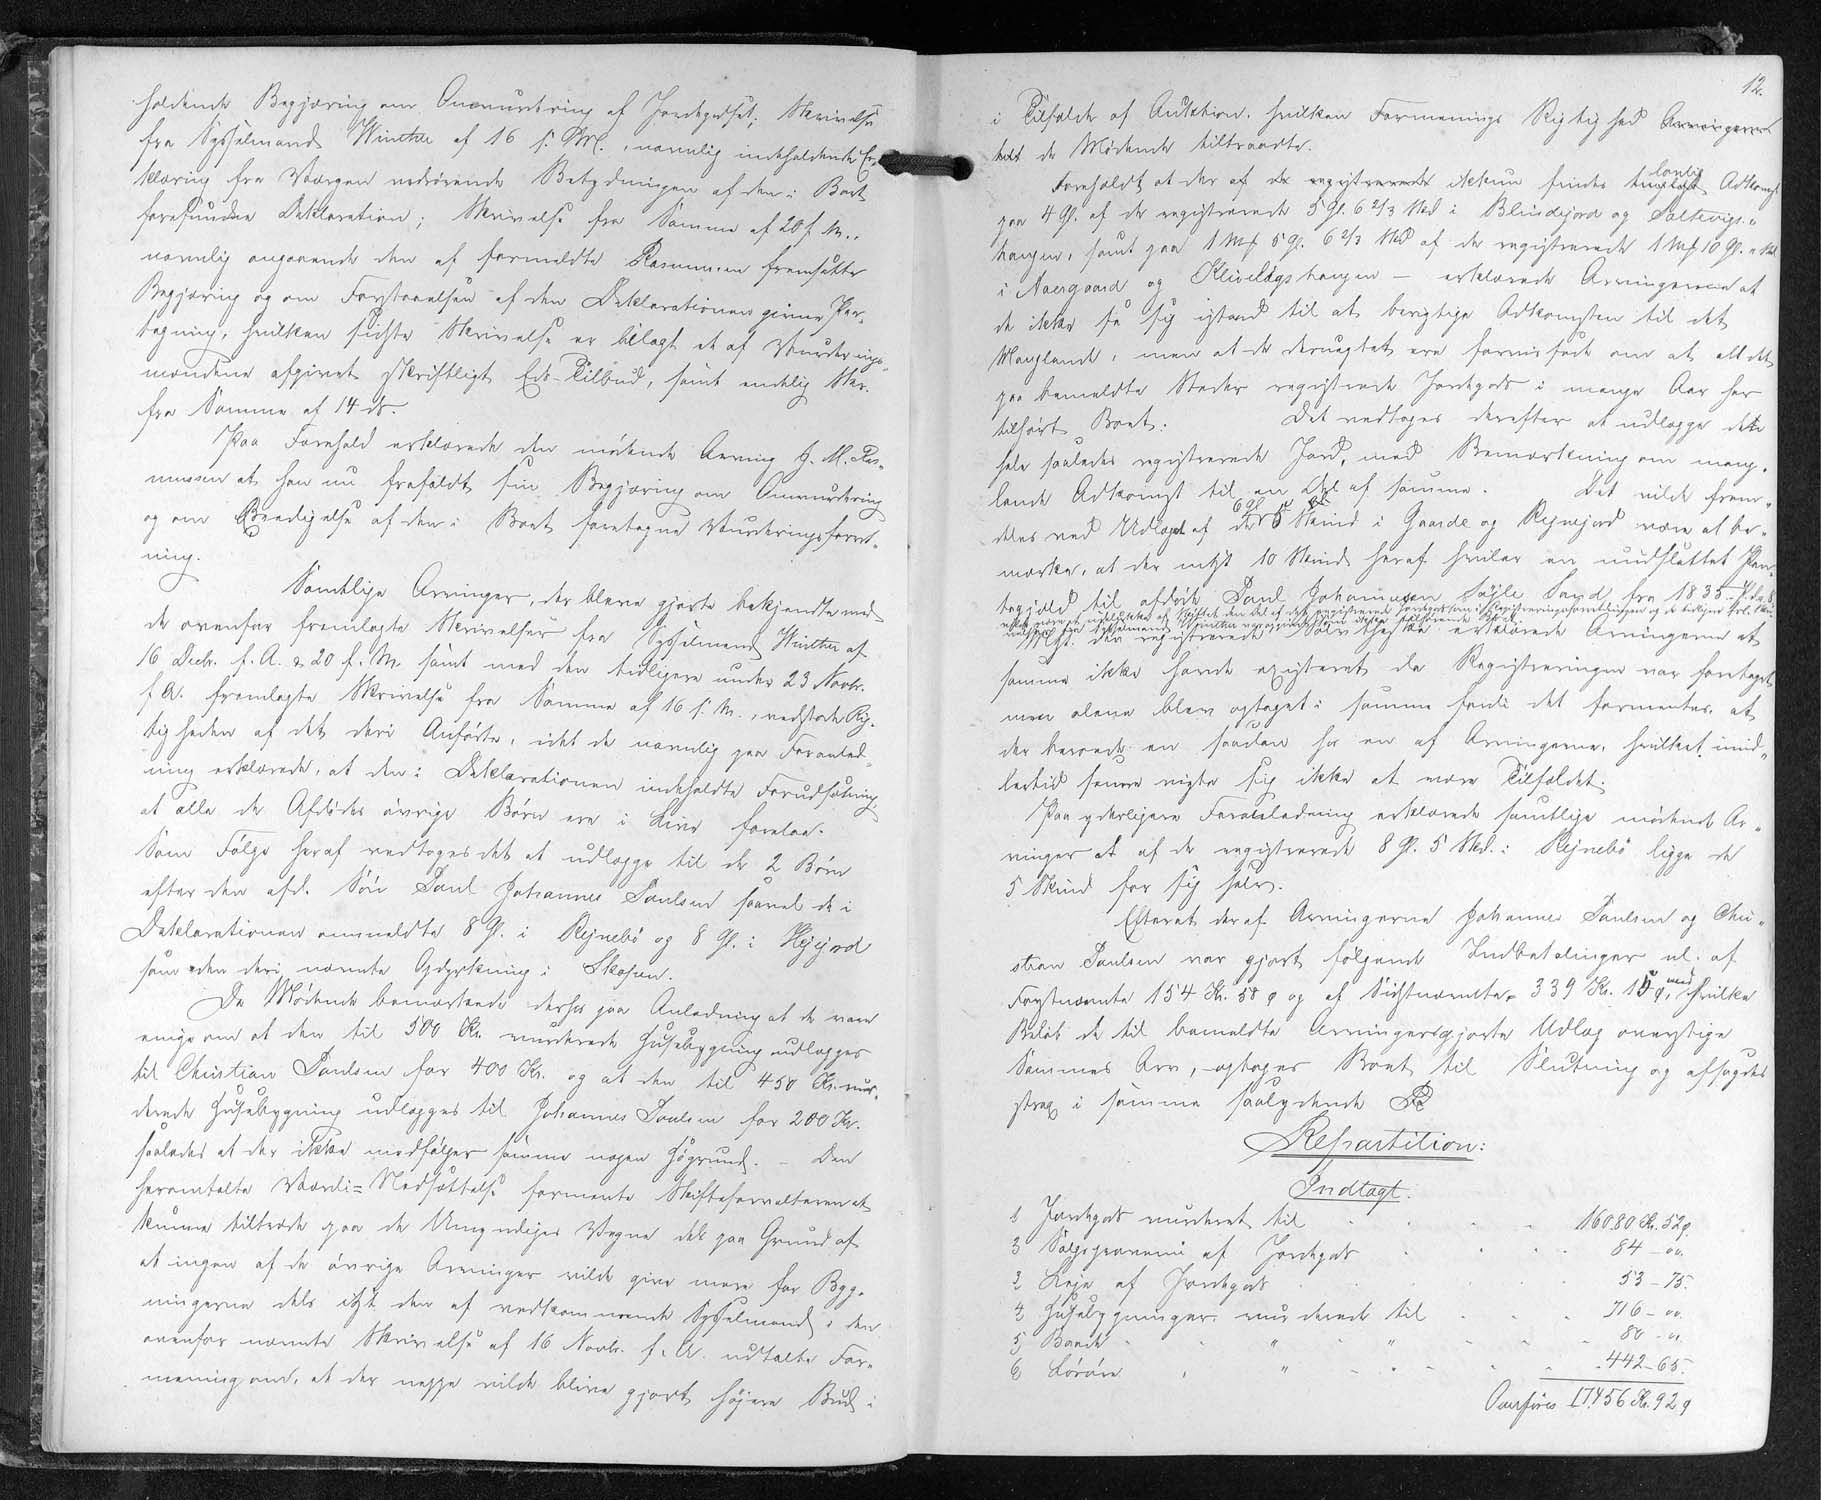 holdende Begjæring om Omvurdering af Jordegodset; Skrivelse
fra Sysselmand Winther af 16 f. M., navnlig indeholdende Er-
klæring fra Værgen vedrörende Betydningen af den i Boet
forefundne Deklaration; Skrivelse fra Samme af 20 f. M.,
navnlig angaaende den af formeldte Rasmussen fremsatte
Begjæring og om Forstaaelsen af den Deklarationen givne Paa-
tegning, hvilken sidste Skrivelse er bilagt et af Vurderings-
mændene afgivet skriftligt Eds-Tilbud, samt endelig Skr.
fra Samme af 14 ds.
Paa Forehold erklærede den mödende Arving J. M. Ras-
mussen at han nu frafaldt sin Begjæring om Omvurdering
og om Beedigelse af den i Boet foretagne Vurderingsforret-
ning.
Samtlige Arvinger, der bleve gjorte bekjendte med
de ovenfor fremlagte Skrivelser fra Sysselmand Winther af
16 Decbr. f. A. & 20 f. M. samt med den tidligere under 23 Novbr.
f. A. fremlagte Skrivelse fra Samme af 16 s. M., vedstode Rig-
tigheden af det deri Anförte, idet de navnlig paa Foranled-
ning erklærede, at den i Deklarationen indeholdte Forudsætning
at alle de Afdödes övrige Börn ere i Live forelaa.
Som Fölge heraf vedtoges det at udlægge til de 2 Börn
efter den afd. Sön Poul Johannes Poulsen saavel de i
Deklarationen ommeldte 8 Gl. i Rejnebö og 8 Gl. i
som den deri nævnte Opdyrkning i
De Mödende bemærkede derhos paa Anledning at de vare
enige om at den til 500 Kr. vurderede Husebygning udlægges
til Christian Poulsen for 400 Kr. og at den til 450 Kr. vur-
derede Husebygning udlægges til Johannes Poulsen for 200 Kr.
saaledes at der ikke medfölger samme nogen Husgrund. - Den
heromtalte Værdi-Nedsættelse formente Skifteforvalteren at
kunne tiltræde paa de Umyndiges Vegne dels paa Grund af
at ingen af de övrige Arvinger vilde give mere for Byg-
ningerne dels iflg. den af vedkommende Sysselmand i den
ovenfor nævnte Skrivelse af 16 Novbr. f. A. udtalte For-
mening om, at der neppe vilde blive gjort höjere Bud i
12.
i Tilfælde af Auktion, hvilken Formenings Rigtighed Arvingerne
de Mödende tiltraadte.
Foreholdt at der af de registrerede ikkun findes lovlig Adkomst
paa 4 Gl. af de registrerede 5 Gl. 6 2/3 Skd i og
haugen, samt paa 1 Mk 5 Gl. 6 2/3 Skd af de registrerede 1 Mk 10 Gl.
i og - erklærede Arvingerne at
de ikke se sig istand til at berigtige Adkomsten til det
Manglende, men at de desuagtet ere forvissede om at alt det
paa bemeldte Steder registrerede Jordegods i mange Aar har
tilhört Boet. Det vedtoges derefter at udlægge dette
hele saaledes registrerede Jord, med Bemærkning om mang-
lende Adkomst til en Del af samme. Det vilde frem-
deles ved Udlæget af de 6 Gl. 5 Skind i Gaarde og Rejnejord være at be-
mærke, at der intil 10 Skind heraf hviler en uudslettet Pan-
tegjæld til afdöde Poul Johannesen Söjle Sand fra 1835
registrerede erklærede Arvingerne at
samme ikke havde existeret da Registreringen var foretaget
men alene blev optaget i samme fordi det formentes, at
der beroede en saadan hos en af Arvingerne, hvilket imid-
lertid senere viste sig ikke at være Tilfældet.
Paa yderligere Foranledning erklærede samtlige mödende Ar-
vinger at af de registrerede 8 Gl. 5 Skd. i Rejnebö ligge de
5 Skind for sig selv.
Efterat der af Arvingerne Johannes Poulsen og Chri-
stian Poulsen var gjort fölgende Indbetalinger nl. af
Förstnævnte 154 Kr. 58 ø og af Sidstnævnte 339 Kr. 15 ø, med hvilke
Belöb de til bemeldte Arvinger gjorte Udlæg overstige
Sammes Arv, optoges Boet til Slutning og afsagdes
strax i samme saalydende
Repartition:
Indtægt.
1 Jordegods vurderet til 16080 Kr. 52 ø.
2 Salgsprovenu af Jordegods 84 - 00.
3 Leje af Jordegods 53 - 75.
4 Husebygninger vurderede til 716 - 00.
5 Baade " " 80 - 00.
6 Lösöre " 442 - 65.
Overföres 17456 Kr. 92 ø